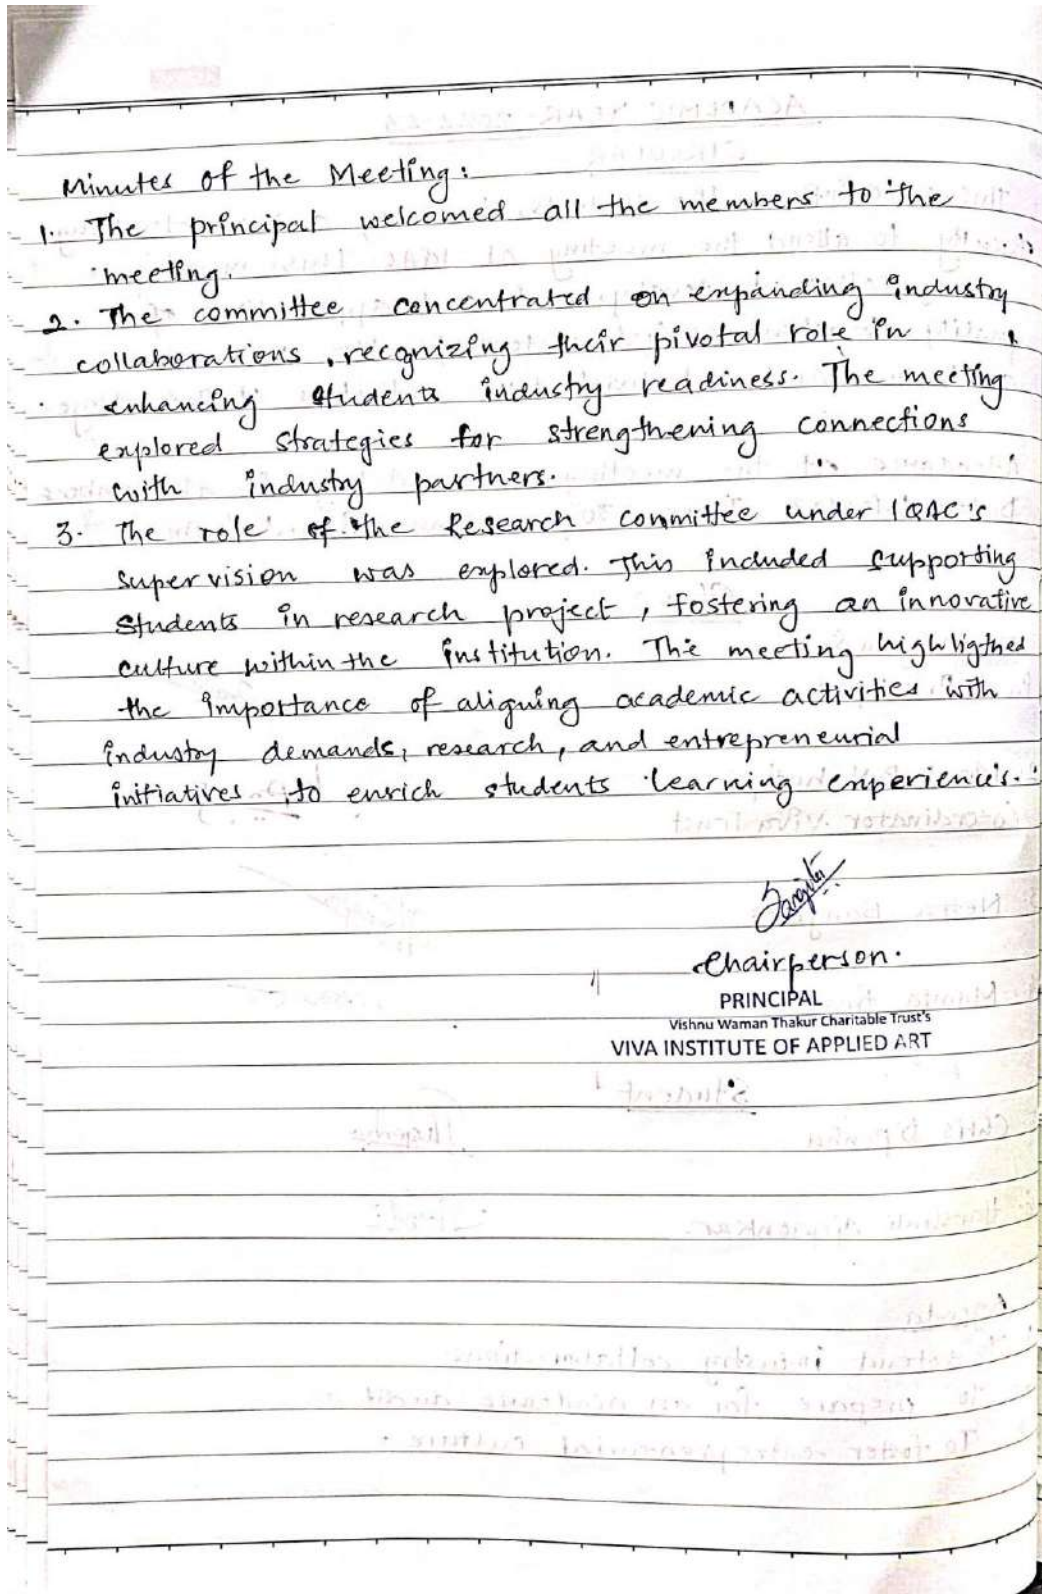 Minutes of the Meeting:
1. The principal welcomed all the members to the
meeting.
2. The committee concentrated on expanding industry
collaborations, recognizing their pivotal role in
enhancing students industry readiness. The meeting
explored strategies for strengthening connections
with industry partners.
3. The role of the Research committee under IQAC's
supervision was explored. This included supporting
students in research project, fostering an innovative
culture within the institution. The meeting highligthed
the importance of aligning academic activities with
industry demands, research, and entrepreneurial
initiatives to enrich students learning experiences.
Chairperson.
PRINCIPAL
Vishnu Waman Thakur Charitable Trust's
VIVA INSTITUTE OF APPLIED ART